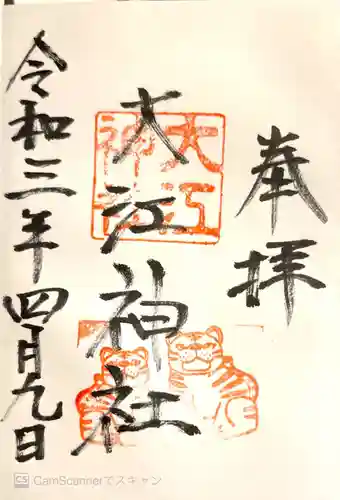 奉拝
大江神社
大江神社
令和三年四月九日
CS CamScannerでスキャン